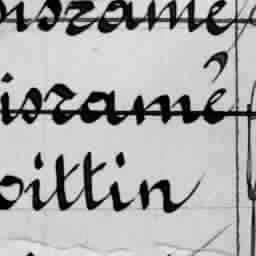 isramé
isramé
oittin